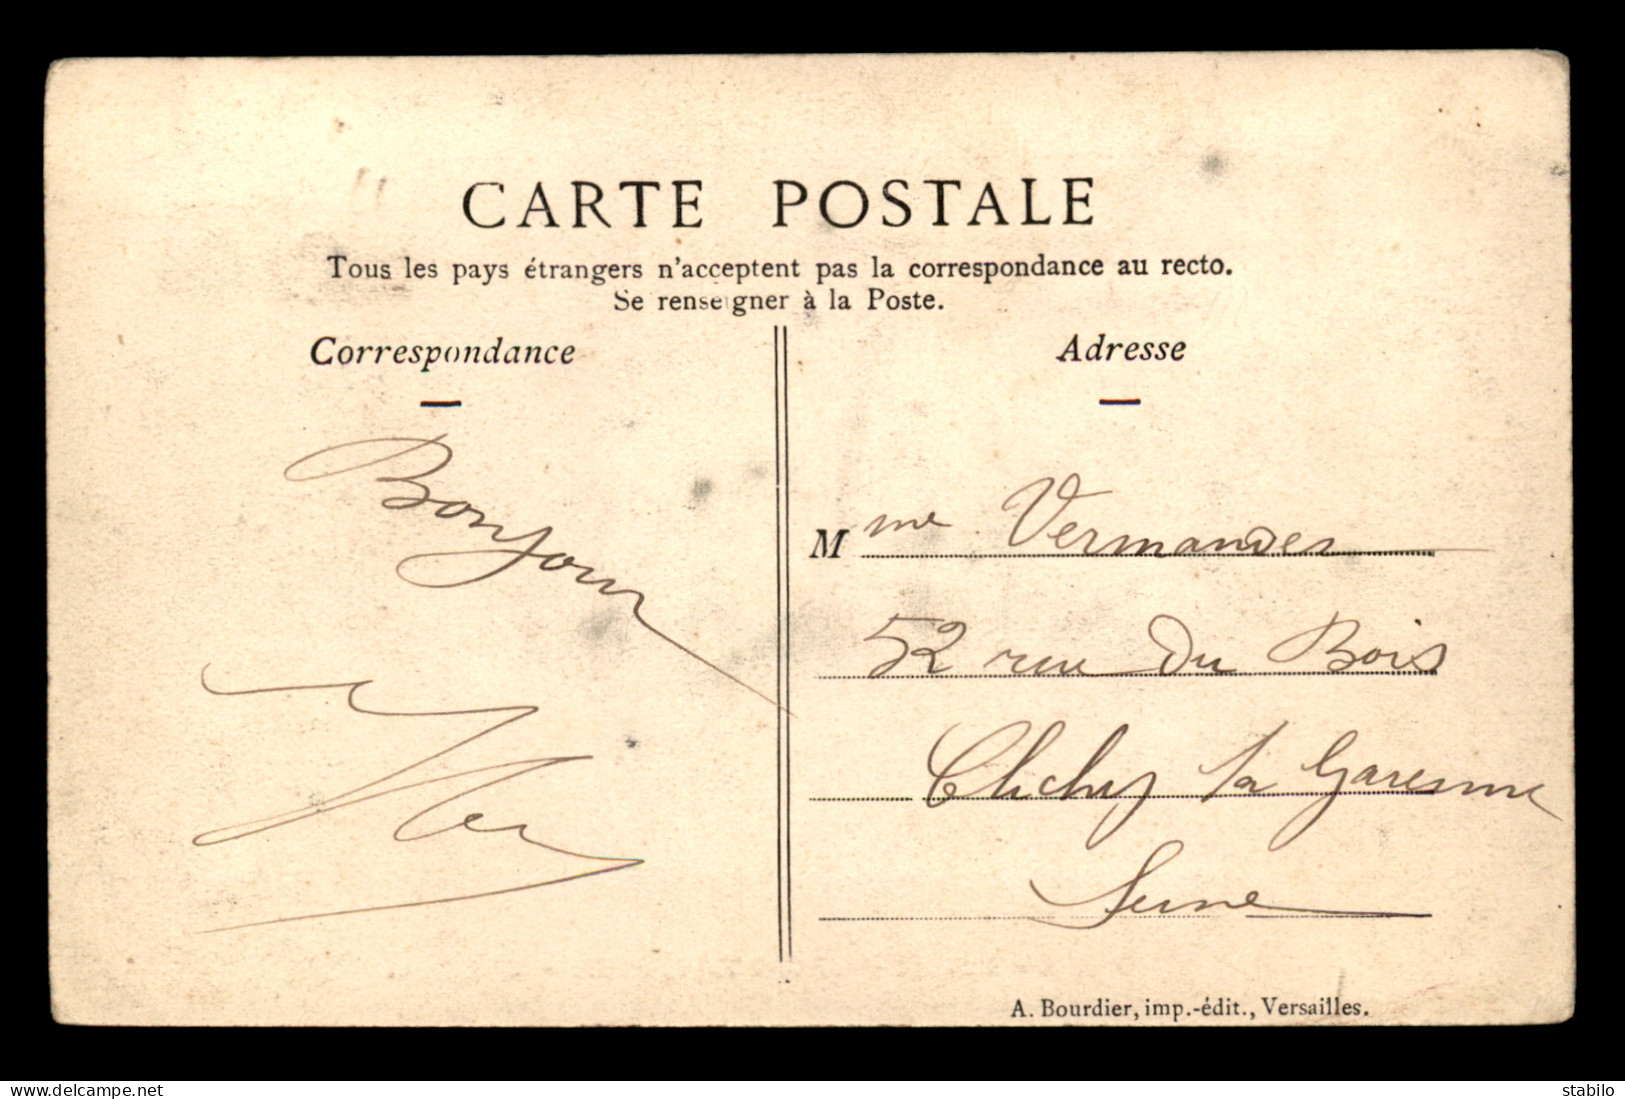 CARTE POSTALE
Tous les pays étrangers n'acceptent pas la correspondance au recto.
Se renseigner à la Poste.
Correspondance
Bonjour
Adresse
Mme Vermander
52 rue du Bois
Clichy la Garenne
Seine
A. Bourdier, imp.-édit., Versailles.
delcampe.net
stabilo